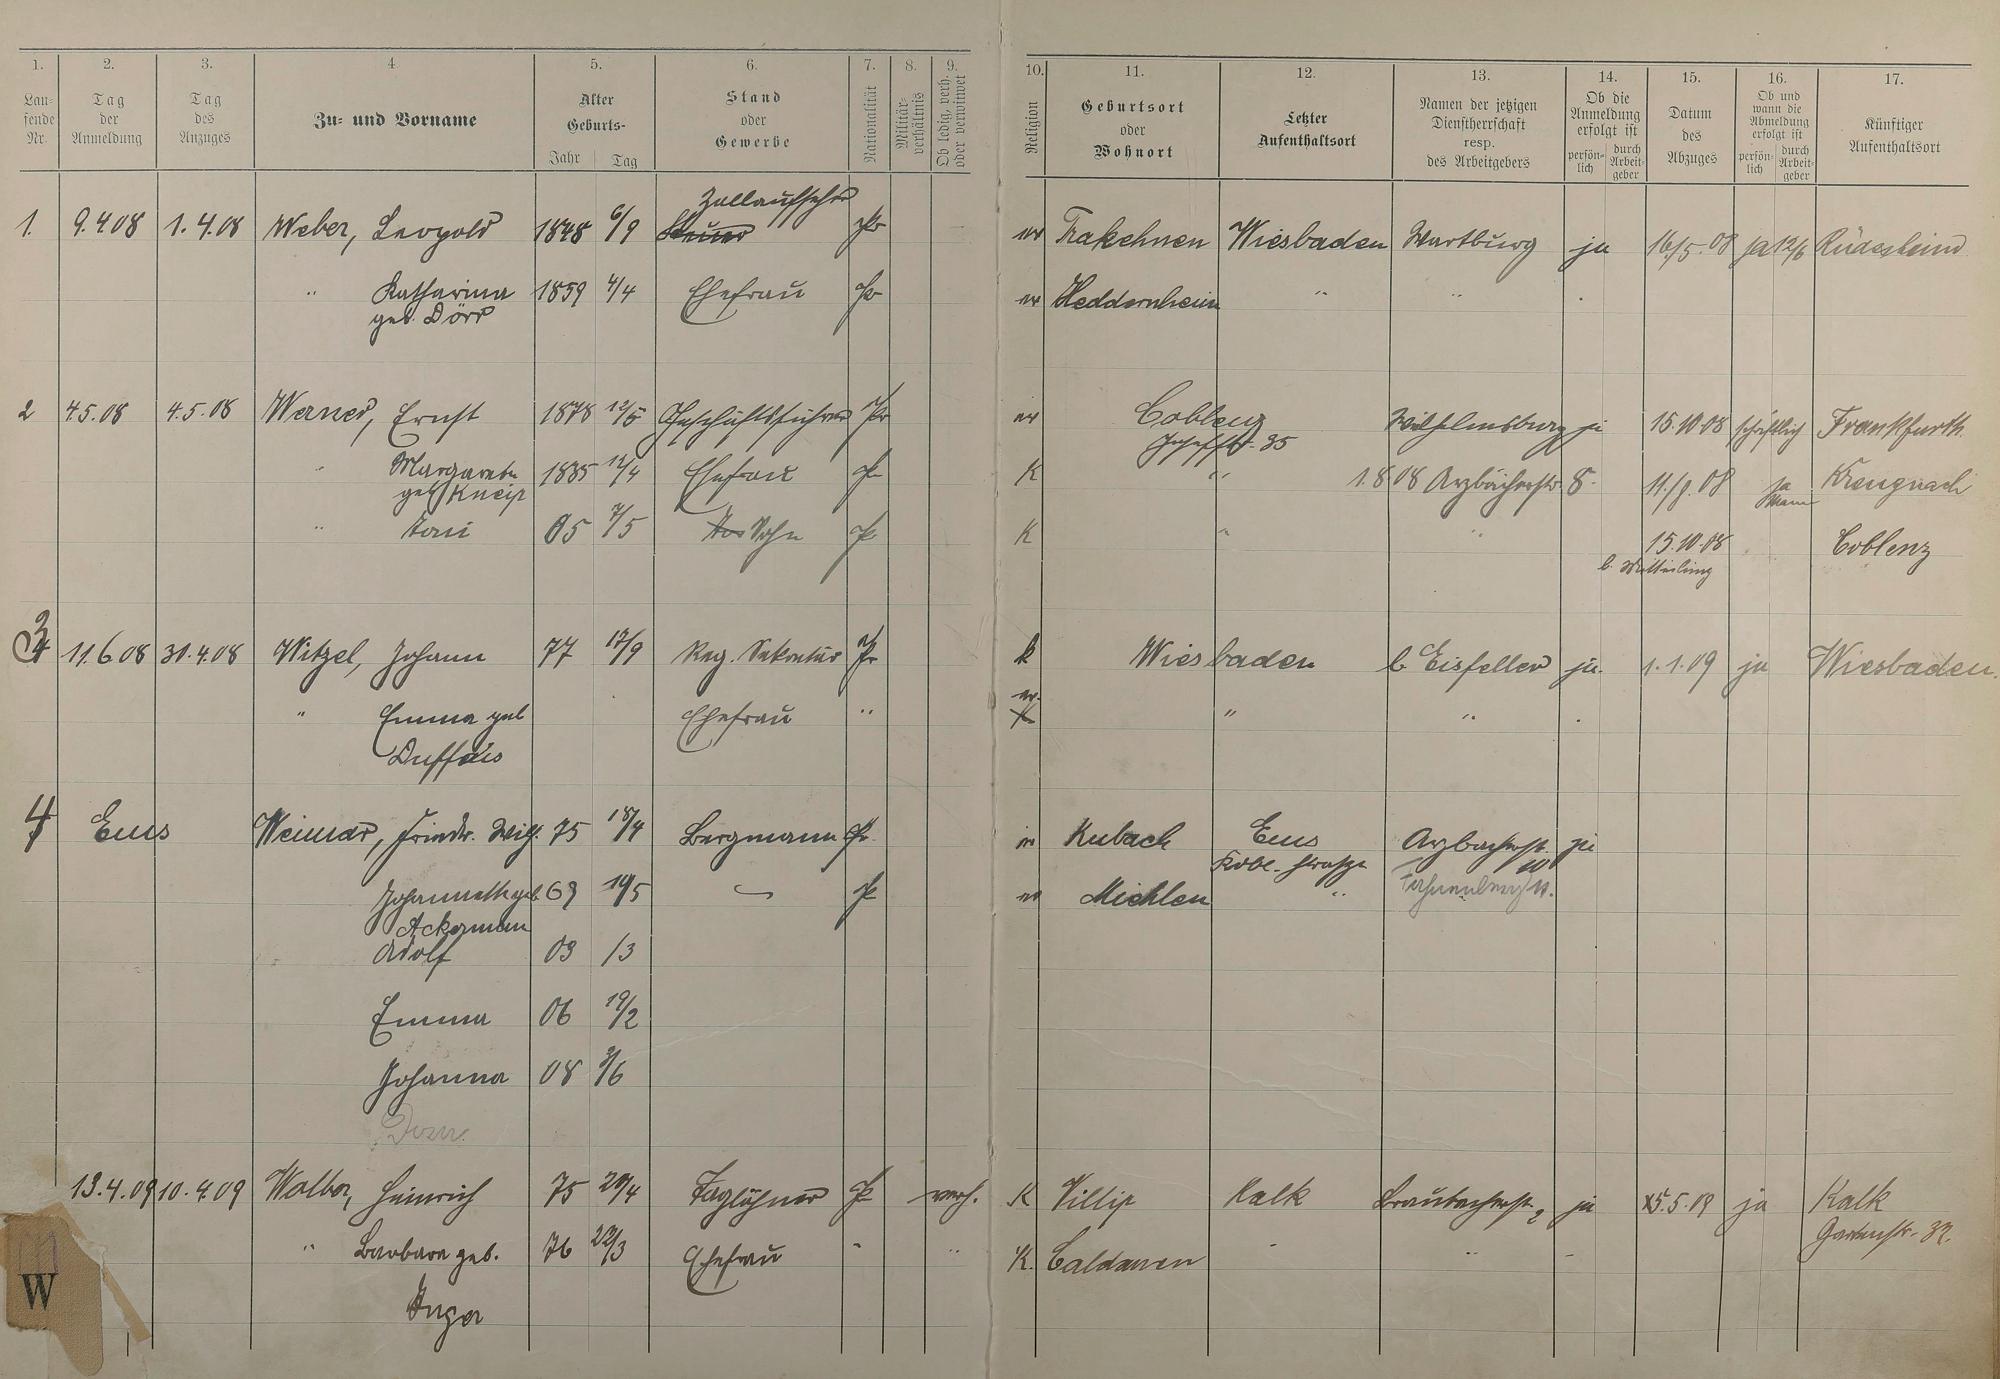 1. 2. 3. 4 5. 6. 7. 8. 9. 10. 11. 12. 13. 14. 15. 16. 17.
Laufende Nr.
Tag der Anmeldung
Tag des Anzuges
Zu- und Vorname
Alter Geburts-
Jahr Tag
Stand oder Gewerbe
Nationalität
Militärverhältnis
Ob ledig, verh. oder verwitwet
Religion
Geburtsort oder Wohnort
Letzter Aufenthaltsort
Namen der jetzigen Dienstherrschaft resp. des Arbeitgebers
Ob die Anmeldung erfolgt ist
persönlich durch Arbeitgeber
Datum des Abzuges
Ob und wann die Abmeldung erfolgt ist
persönlich durch Arbeitgeber
Künftiger Aufenthaltsort
Zollaufseher
1. 9.4.08 1.4.08 Weber, Leopold 1848 6/9 Steuer Pr ev Trakehnen Wiesbaden Wartburg ja 16/5.08 ja 12/6 Rüdesheim
" Katharina 1859 4/4 Ehefrau Pr ev Heddernheim " "
geb. Dörr
2 4.5.08 4.5.08 Werner, Ernst 1878 12/5 Geschäftsführer Pr ev Coblenz Wilhelmsburg ja 15.10.08 schriftlich Frankfurth.
35
" Margarete 1885 12/4 Ehefrau Pr K " 1.8.08 Arzbacherstr. 8. 11./9.08 ja Kreuznach
geb. Kneip Mann
" Toni 05 7/5 Sohn Pr K " " 15.10.08 Coblenz
l. Mitteilung
3 11.6.08 31.4.08 Witzel, Johann 77 17/9 Reg. Sekretär Pr k Wiesbaden b Eisfeller ja. 1.1.09 ja Wiesbaden.
ev.
" Emma geb Ehefrau " K " "
Duffais
4 Ems Weimar, Friedr. Wilh. 75 18/4 Bergmann Pr. ev Kubach Ems Arzbacherst. ja
Kobl. Strasse 10
Johannette geb. 69 14/5 Pr ev Miehlen " 11.
Ackerman
Adolf 03 /3
Emma 06 19/2
Johanna 08 3/6
13.4.09 10.4.09 Walber, Heinrich 75 20/4 Taglöhner Pr verh. K Villip Kalk Braubacherst. 2 ja 15.5.09 ja Kalk
Gartenstr. 32.
" Barbara geb. 76 22/3 Ehefrau " " K. Caldauen " "
Unger
W